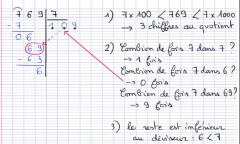 7 6 9 7
- 7 1 0 9
0 6
6 9
- 6 3
6
1) 7 x 100 < 769 < 7 x 1000
→ 3 chiffres au quotient
2) Combien de fois 7 dans 7 ?
→ 1 fois
Combien de fois 7 dans 6 ?
→ 0 fois
Combien de fois 7 dans 69 ?
→ 9 fois
3) le reste est inférieur
au diviseur : 6 < 7